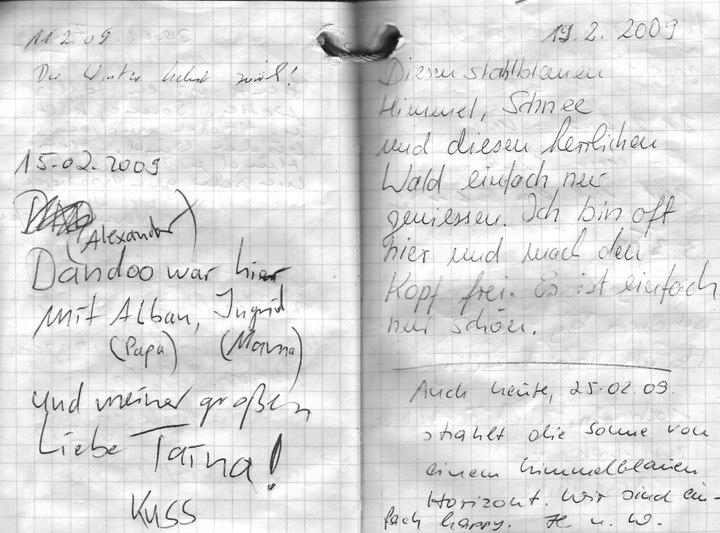 11.2.09
Der Winter kehrt zurück!
15.02.2009
(Alexander)
Dandoo war hier
mit Alban, Ingrid
(Papa) (Mama)
und meiner großen
Liebe Taina!
Kuss
19.2.2009
Diesen stahlblauen
Himmel, Schnee
und diesen herrlichen
Wald einfach nur
geniessen. Ich bin oft
hier und mach den
Kopf frei. Es ist einfach
nur schön.
Auch heute, 25.02.09.
strahlt die Sonne von
einem himmelblauen
Horizont. Wir sind ein-
fach happy. H u. W.